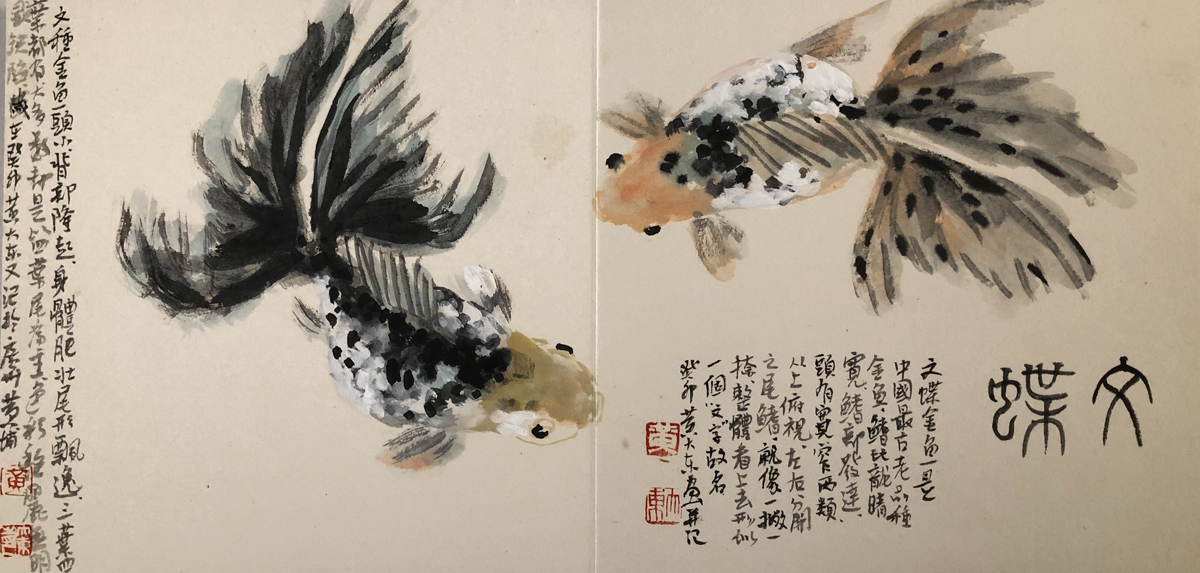 文蝶
文蝶金魚一是
中國最古老品種
金魚、鰭比龍睛
寬、鰭部發達、
頭有寬窄兩類
从上俯視、左右分開
之尾鰭、親像一撇一
捺、整體看上去形似
一個“文”字故名
癸卯黄大东画并记
黄
文種金魚頭小背部隆起、身體肥壮尾形飄逸、三葉四
葉都有大多數却是四葉尾為主色彩
癸卯黄大东又记於廣州黄埔
黄